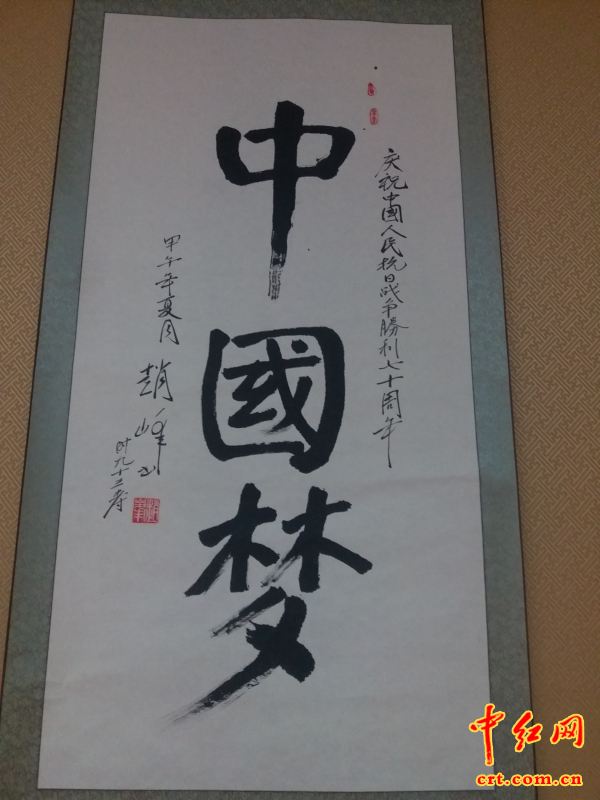 庆祝中國人民抗日战争勝利七十周年
中國梦
甲午年夏月
趙峰书
时九十三寿
中红网
crt.com.cn